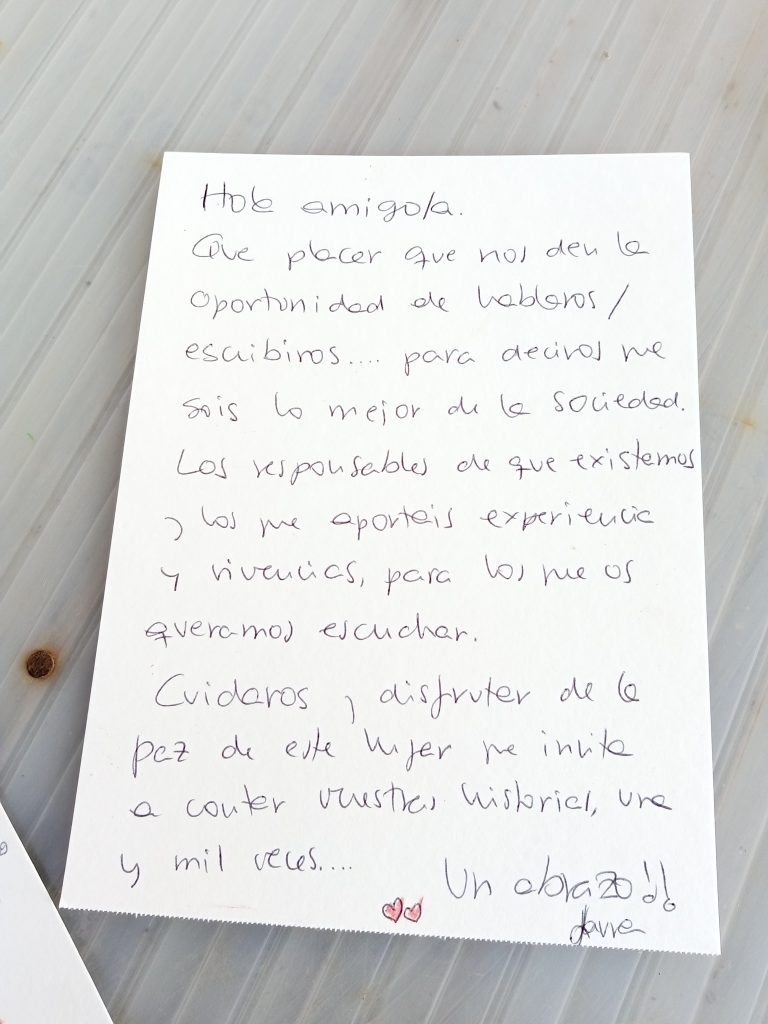 Hola amigo/a.
Que placer que nos den la
oportunidad de hablaros /
escribiros.... para deciros que
sois lo mejor de la sociedad.
Los responsables de que existemos
y los que aportais experiencia
y vivencias, para los que os
queramos escuchar.
Cuidaros y disfrutar de la
paz de este lugar que invita
a contar vuestras historias, una
y mil veces....
Un abrazo!!